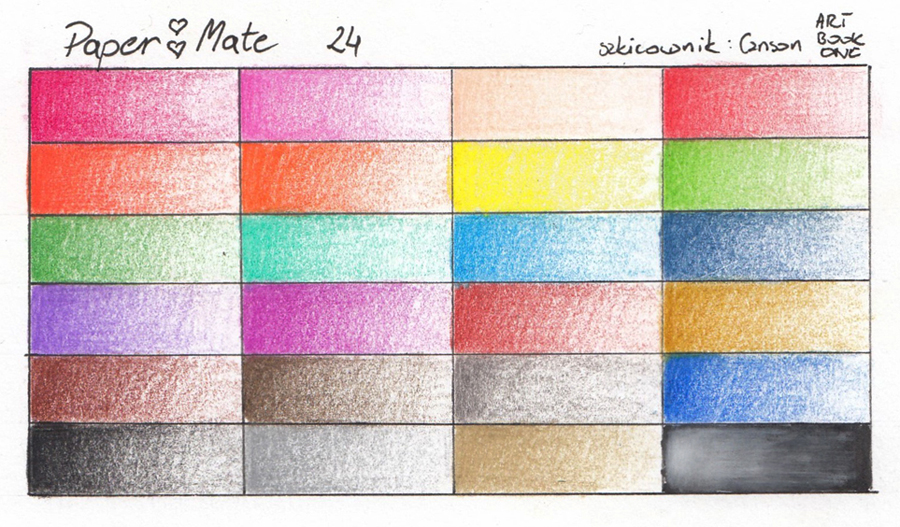 Paper Mate 24
szkicownik: Canson
ART
BOOK
ONE